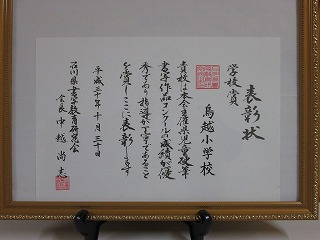 表彰状
学校賞
鳥越小学校
貴校は本会主催県児童硬筆
書写作品コンクールの成績が優
秀であり指導が丁寧であること
を賞しここに表彰します
平成三十年十月三十日
石川県書写教育研究会
会長 中越尚志